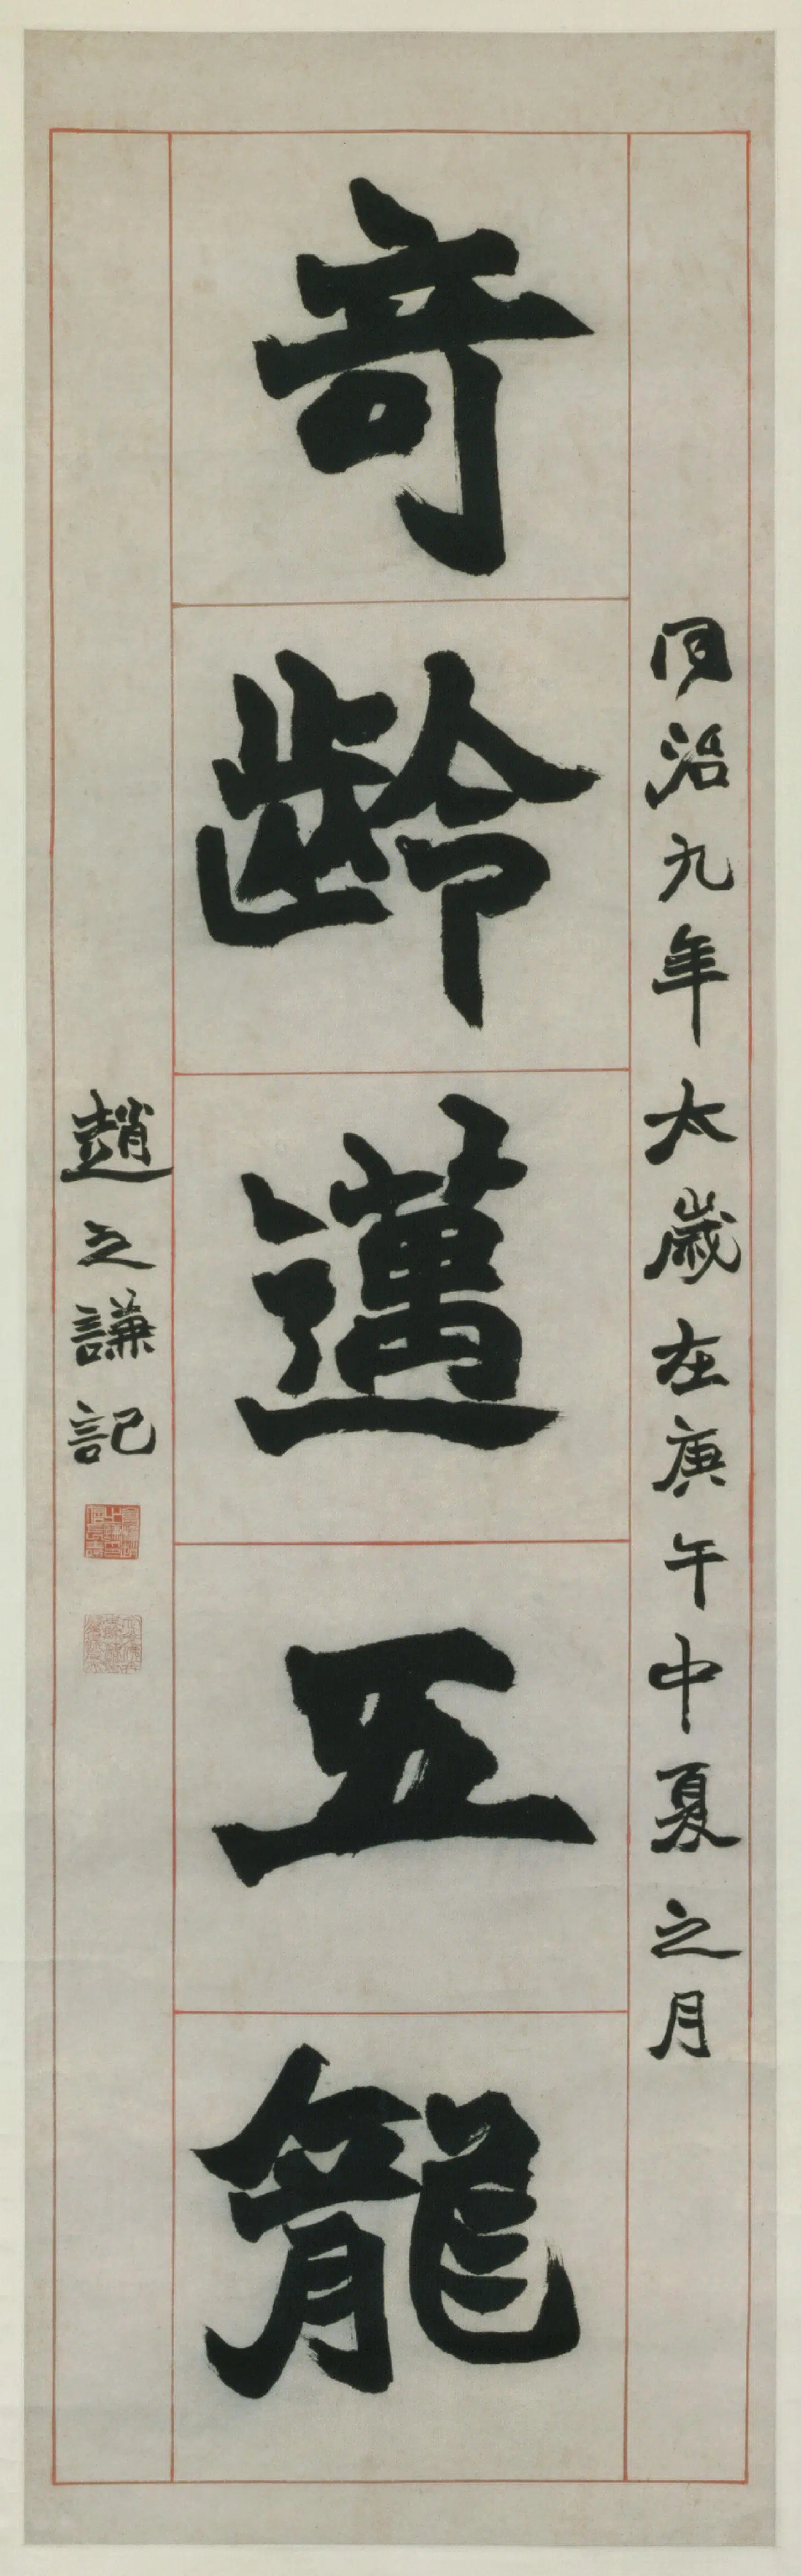 同治九年太歲在庚午中夏之月
奇齡邁五龍
趙之謙記